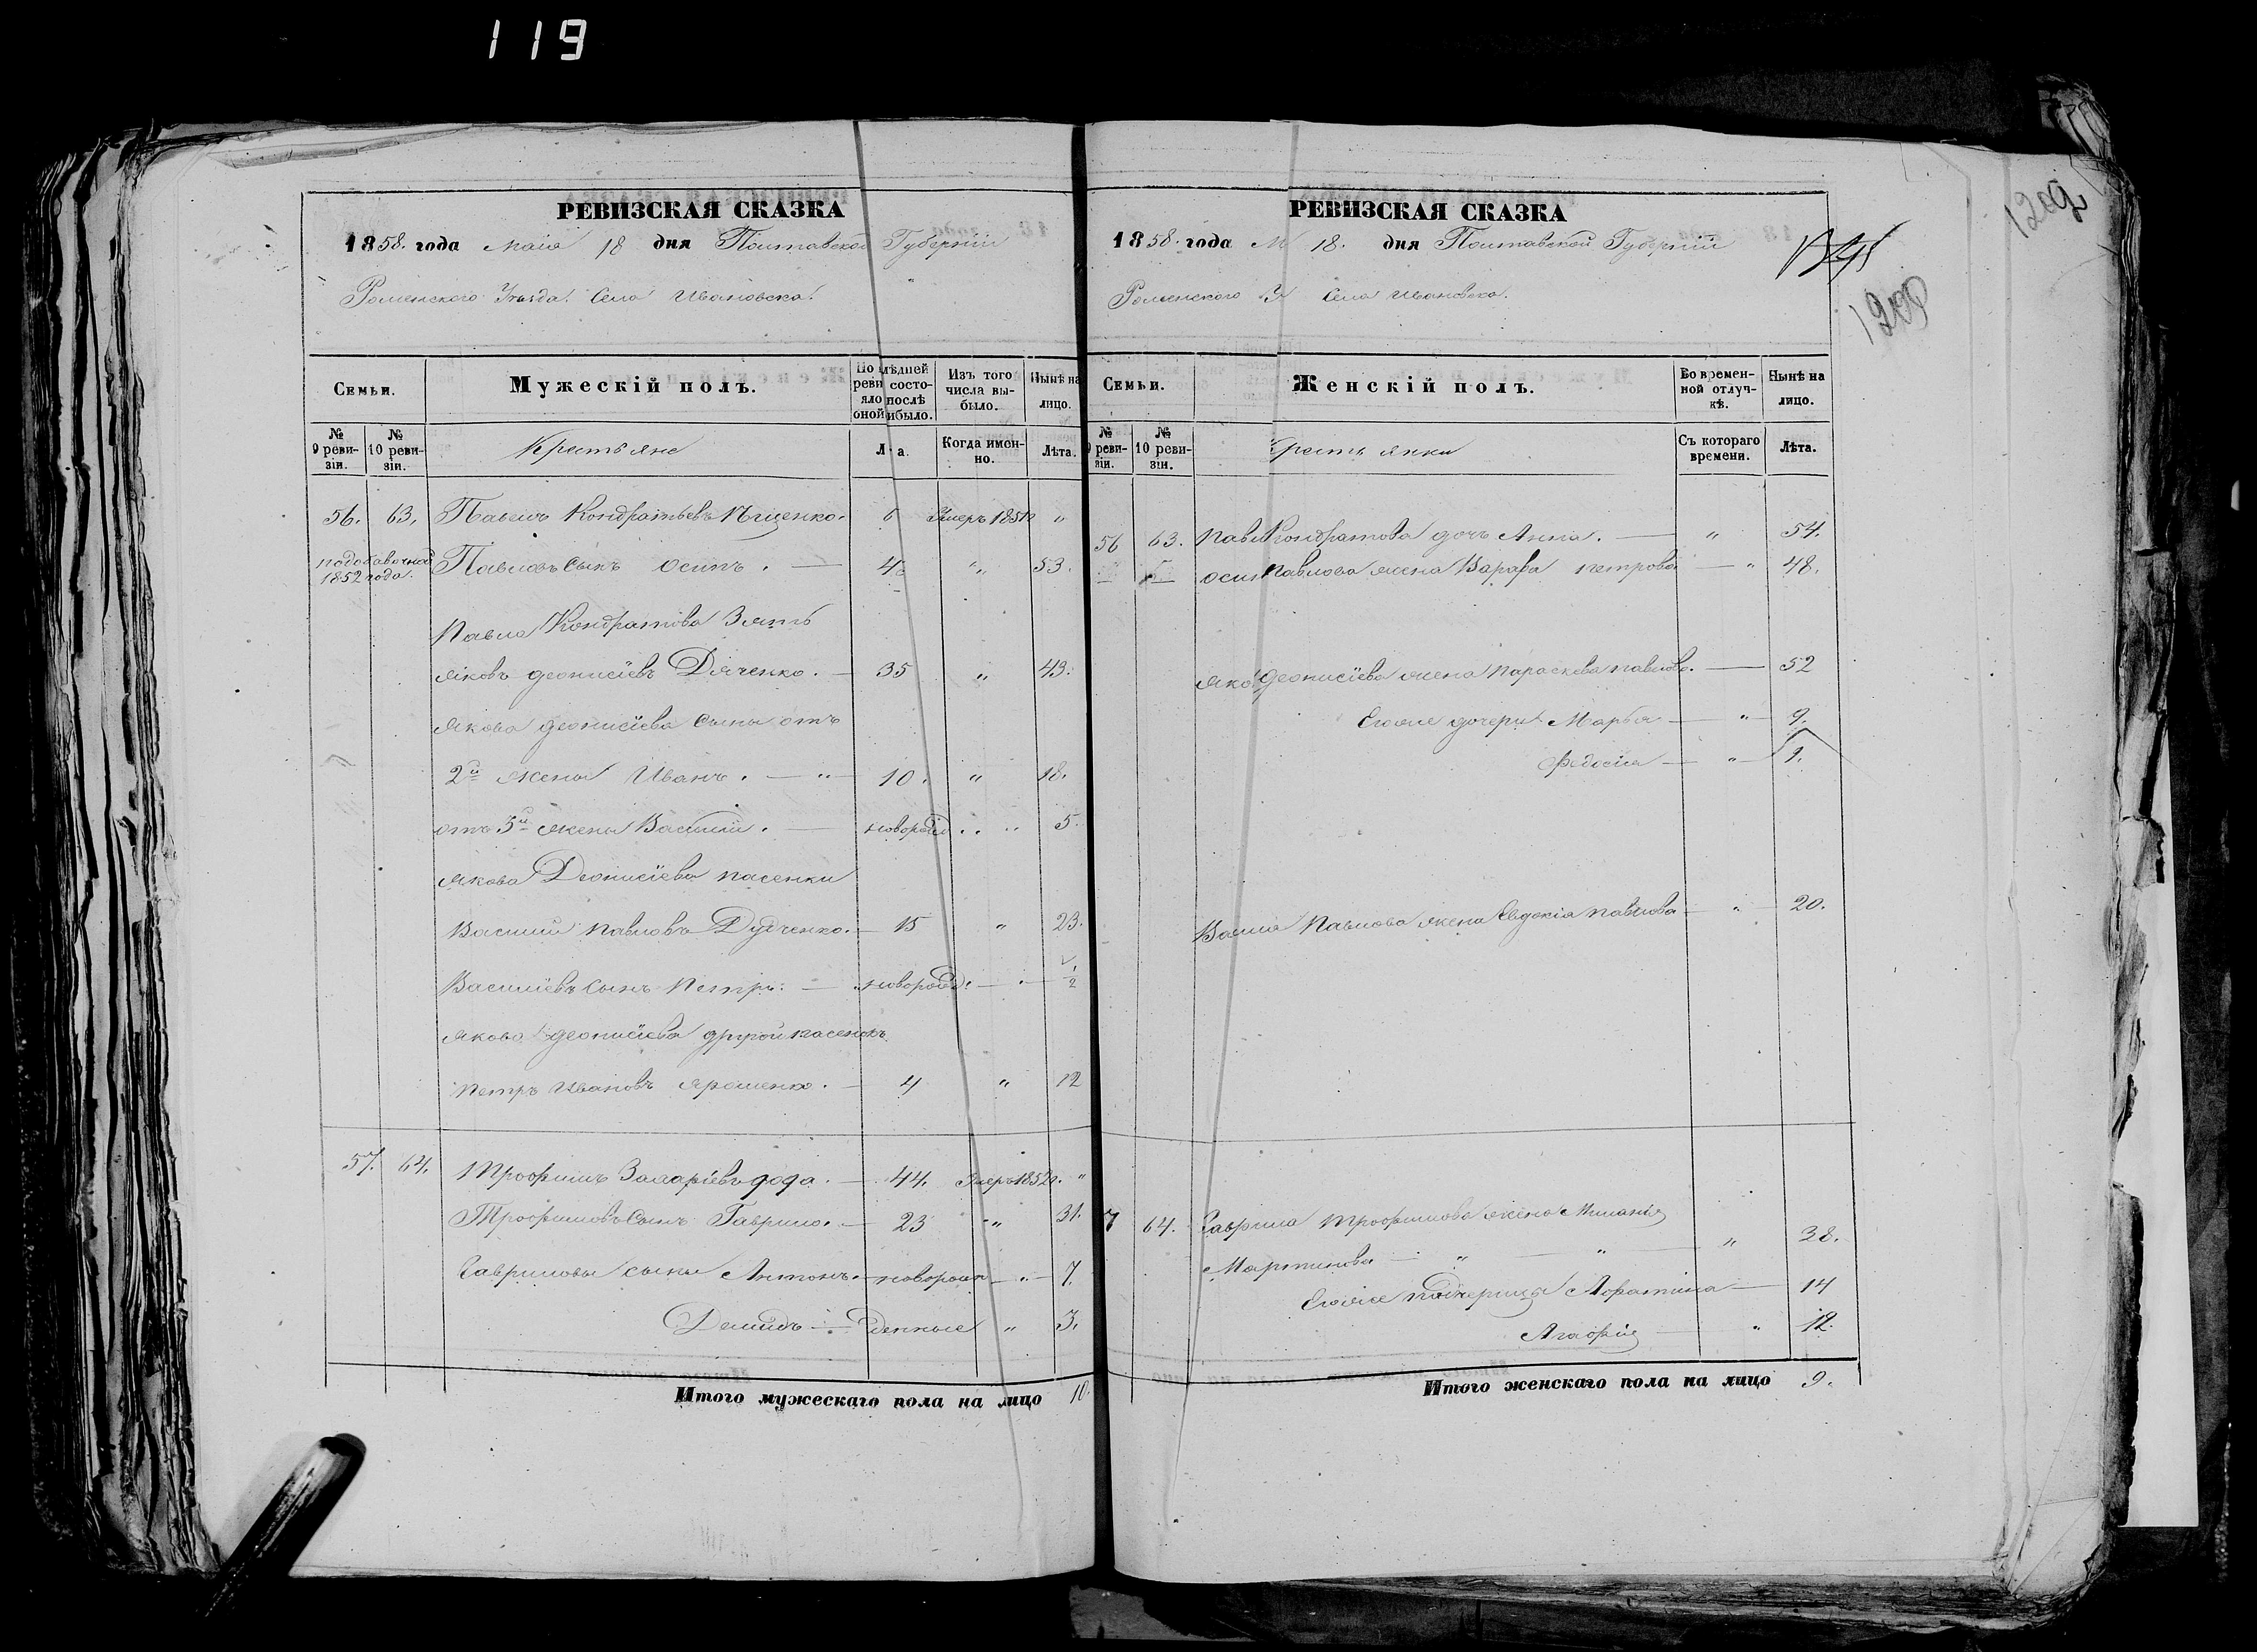 119
РЕВИЗСКАЯ СКАЗКА
1858. года Маія 18 дня Полтавской Губерніи
Роменского Уѣзда. Села Ивановска.
Семьи.
Мужескій полъ.
По слѣдней ревизіи состояло и послѣ оной прибыло.
Изъ того числа выбыло.
Нынѣ на лицо.
№ 9 ревизіи.
№ 10 ревизіи.
Крестьяне
Лѣта.
Когда именно.
Лѣта.
56. 63. Павелъ Кондратьевъ 6 Умеръ 185 "
по добавочной 1852 года. Павловъ Сынъ Осипъ. 4 " 53.
Павла Кондратова Зять
Яковъ Деонисіевъ Дяченко. 35 " 43.
Якова Деонисіева Сыны отъ
2й жены Иванъ. " 10. " 18.
отъ 3й жены Василій. новорожд " 5.
Якова Деонисіева пасенки
Василій Павловъ Дудченко. 15 " 23.
Василіевъ Сынъ Петръ. новорожд. 1/2
Якова Деонисіева другой пасенокъ
Петръ Ивановъ Ярошенко. 4 " 12
57. 64. Трофимъ Захаріевъ 44. Умеръ 1852г. "
Трофимовъ Сынъ Гаврило. 23 " 31.
Гавриловы сыны Антонъ. новорож " 7.
Демидъ денные " 3.
Итого мужескаго пола на лицо 10.
РЕВИЗСКАЯ СКАЗКА
1858. года М 18. дня Полтавской Губерніи
Роменского У Села Ивановска.
1209
1209
Семьи.
Женскій полъ.
Во временной отлучкѣ.
Нынѣ на лицо.
№ 9 ревизіи.
№ 10 ревизіи.
Крестьянки
Съ котораго времени.
Лѣта.
56 63. Павл Кондратова дочь Анна. " 54.
Осип Павлова жена Варвара Петрова " 48.
Яко Деонисіева жена Параскева Павлова. 52
Егоже дочери Марья " 9.
Федосія " 1.
Васил Павлова жена Евдокія Павлова " 20.
7 64. Гаврила Трофимова жена Миланія
Мартинова " " " 38.
Егоже падчерицы 14
Агафія " 12.
Итого женскаго пола на лицо 9.